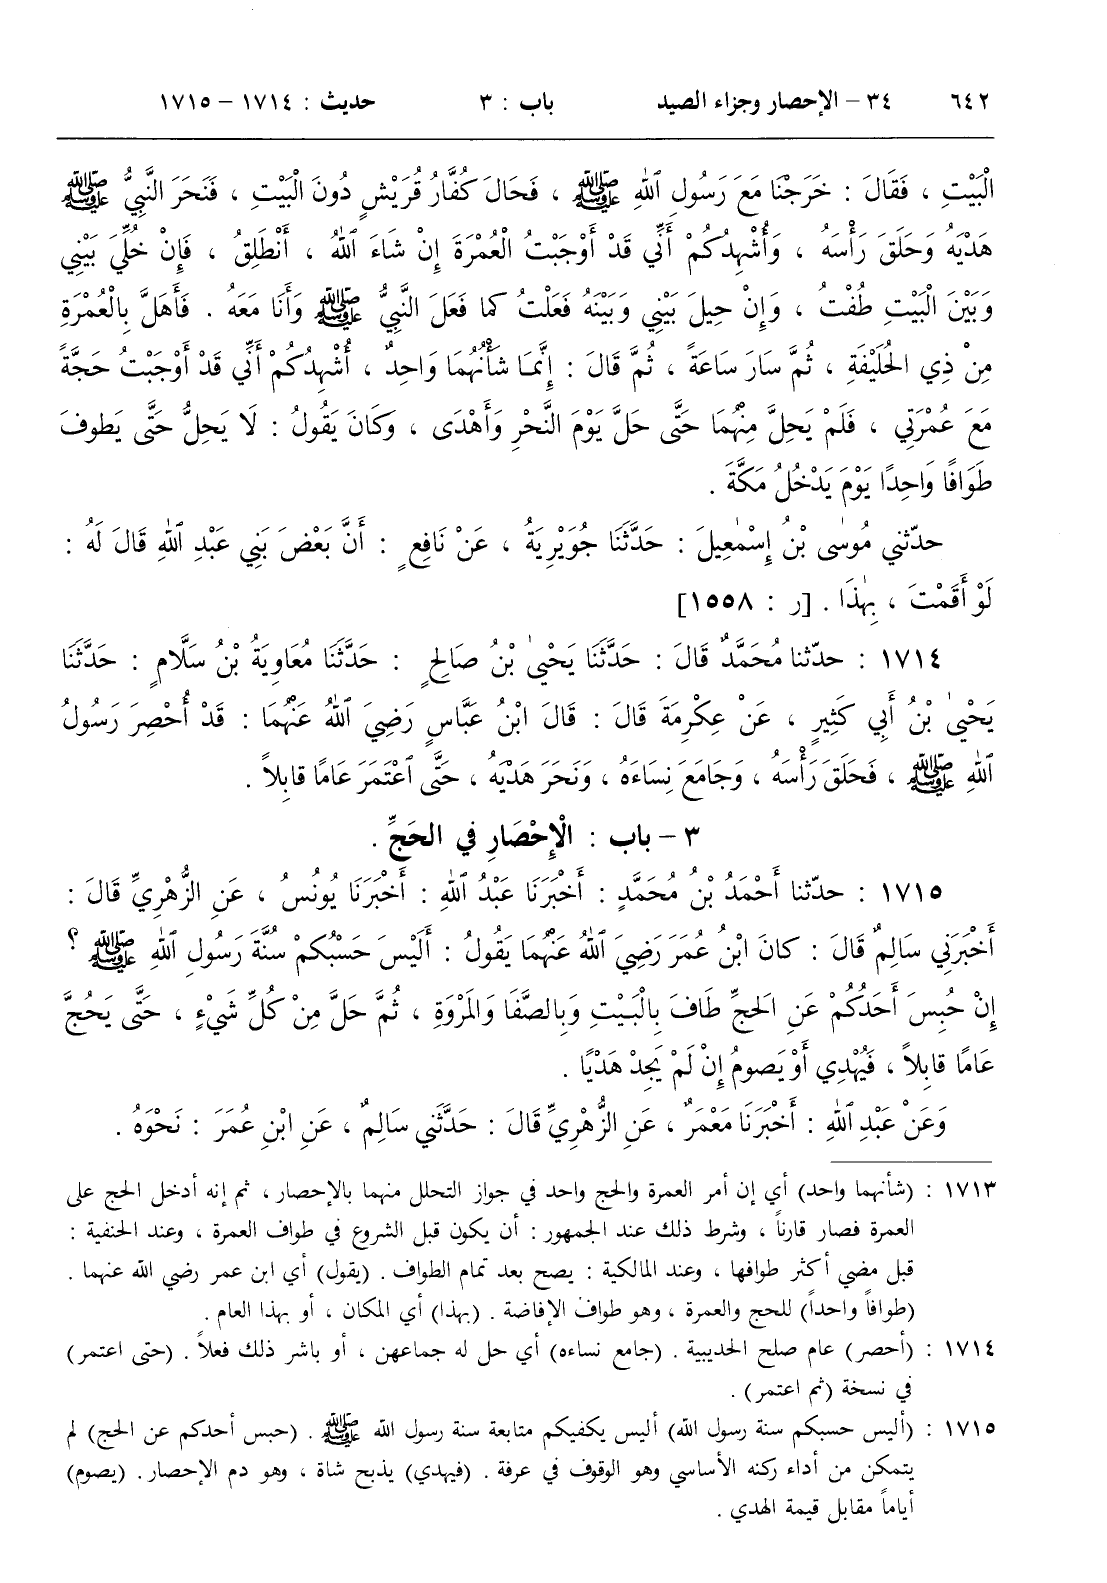 ٦٤٢ ٣٤ - الإحصار وجزاء الصيد باب : ٣ حديث : ١٧١٤ - ١٧١٥
الْبَيْتِ ، فَقَالَ : خَرَجْنَا مَعَ رَسُولِ ٱللهِ ﷺ ، فَحَالَ كُفَّارُ قُرَيْشٍ دُونَ الْبَيْتِ ، فَنَحَرَ النَّبِيُّ ﷺ
هَدْيَهُ وَحَلَقَ رَأْسَهُ ، وَأُشْهِدُكُمْ أَنِّي قَدْ أَوْجَبْتُ الْعُمْرَةَ إِنْ شَاءَ ٱللهُ ، أَنْطَلِقُ ، فَإِنْ خُلِّيَ بَيْنِي
وَبَيْنَ الْبَيْتِ طُفْتُ ، وَإِنْ حِيلَ بَيْنِي وَبَيْنَهُ فَعَلْتُ كما فَعَلَ النَّبِيُّ ﷺ وَأَنَا مَعَهُ . فَأَهَلَّ بِالْعُمْرَةِ
مِنْ ذِي الحُلَيْفَةِ ، ثُمَّ سَارَ سَاعَةً ، ثُمَّ قَالَ : إِنَّمَا شَأْنُهُمَا وَاحِدٌ ، أُشْهِدُكُمْ أَنِّي قَدْ أَوْجَبْتُ حَجَّةً
مَعَ عُمْرَتِي ، فَلَمْ يَحِلَّ مِنْهُمَا حَتَّى حَلَّ يَوْمَ النَّحْرِ وَأَهْدَى ، وَكَانَ يَقُولُ : لَا يَحِلُّ حَتَّى يَطوفَ
طَوَافًا وَاحِدًا يَوْمَ يَدْخُلُ مَكَّةَ .
حدّثني مُوسٰى بْنُ إِسْمٰعِيلَ : حَدَّثَنَا جُوَيْرِيَةُ ، عَنْ نَافِعٍ : أَنَّ بَعْضَ بَنِي عَبْدِ ٱللهِ قَالَ لَهُ :
لَوْ أَقَمْتَ ، بِهٰذَا . [ر : ١٥٥٨]
١٧١٤ : حدّثنا مُحَمَّدٌ قَالَ : حَدَّثَنَا يَحْيىٰ بْنُ صَالِحٍ : حَدَّثَنَا مُعَاوِيَةُ بْنُ سَلَّامٍ : حَدَّثَنَا
يَحْيىٰ بْنُ أَبِي كَثِيرٍ ، عَنْ عِكْرِمَةَ قَالَ : قَالَ ابْنُ عَبَّاسٍ رَضِيَ ٱللهُ عَنْهُمَا : قَدْ أُحْصِرَ رَسُولُ
ٱللهِ ﷺ ، فَحَلَقَ رَأْسَهُ ، وَجَامَعَ نِسَاءَهُ ، وَنَحَرَ هَدْيَهُ ، حَتَّى ٱعْتَمَرَ عَامًا قابِلاً .
٣ - باب : الْإِحْصَارِ فِي الحَجِّ .
١٧١٥ : حدّثنا أَحْمَدُ بْنُ مُحَمَّدٍ : أَخْبَرَنَا عَبْدُ ٱللهِ : أَخْبَرَنَا يُونُسُ ، عَنِ الزُّهْرِيِّ قَالَ :
أَخْبَرَنِي سَالِمٌ قَالَ : كانَ ابْنُ عُمَرَ رَضِيَ ٱللهُ عَنْهُمَا يَقُولُ : أَلَيْسَ حَسْبُكُمْ سُنَّةَ رَسُولِ ٱللهِ ﷺ ؟
إِنْ حُبِسَ أَحَدُكُمْ عَنِ الحَجِّ طَافَ بِالْبَيْتِ وَبِالصَّفَا وَالمَرْوَةِ ، ثُمَّ حَلَّ مِنْ كُلِّ شَيْءٍ ، حَتَّى يَحُجَّ
عَامًا قابِلاً ، فَيُهْدِي أَوْ يَصومُ إِنْ لَمْ يَجِدْ هَدْيًا .
وَعَنْ عَبْدِ ٱللهِ : أَخْبَرَنَا مَعْمَرٌ ، عَنِ الزُّهْرِيِّ قَالَ : حَدَّثَنِي سَالِمٌ ، عَنِ ابْنِ عُمَرَ : نَحْوَهُ .
١٧١٣ : (شأنهما واحد) أي إن أمر العمرة والحج واحد في جواز التحلل منهما بالإحصار ، ثم إنه أدخل الحج على
العمرة فصار قارناً ، وشرط ذلك عند الجمهور : أن يكون قبل الشروع في طواف العمرة ، وعند الحنفية :
قبل مضي أكثر طوافها ، وعند المالكية : يصح بعد تمام الطواف . (يقول) أي ابن عمر رضي الله عنهما .
(طوافاً واحداً) للحج والعمرة ، وهو طواف الإفاضة . (بهذا) أي المكان ، أو بهذا العام .
١٧١٤ : (أحصر) عام صلح الحديبية . (جامع نساءه) أي حل له جماعهن ، أو باشر ذلك فعلاً . (حتى اعتمر)
في نسخة (ثم اعتمر) .
١٧١٥ : (أليس حسبكم سنة رسول الله) أليس يكفيكم متابعة سنة رسول الله ﷺ . (حبس أحدكم عن الحج) لم
يتمكن من أداء ركنه الأساسي وهو الوقوف في عرفة . (فيهدي) يذبح شاة ، وهو دم الإحصار . (يصوم)
أياماً مقابل قيمة الهدي .